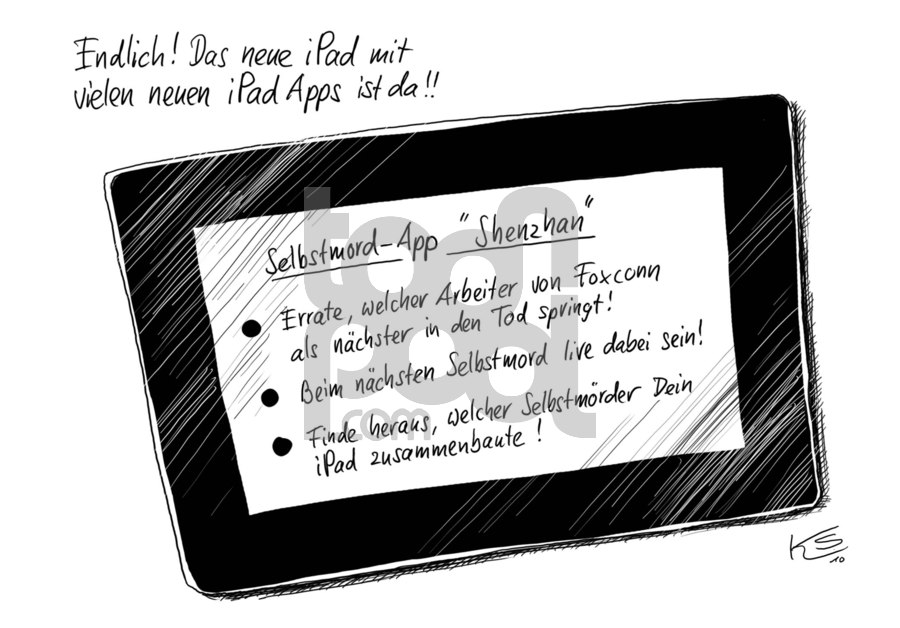 Endlich! Das neue iPad mit
vielen neuen iPad Apps ist da!!
Selbstmord-App "Shenzhan"
● Errate, welcher Arbeiter von Foxconn
als nächster in den Tod springt!
● Beim nächsten Selbstmord live dabei sein!
● Finde heraus, welcher Selbstmörder Dein
iPad zusammenbaute!
toonpool.com
KS
10